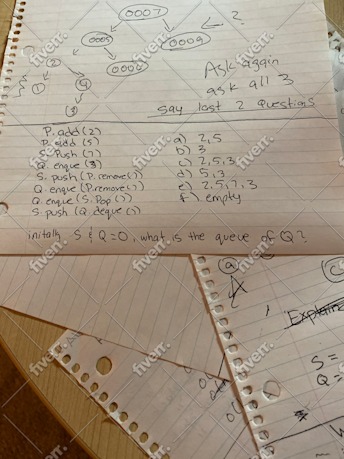 0007
?
0005
0009
2
1
4
3
Ask again
ask all 3
say last 2 questions
P. add (2)
P. add (5)
S. Push (7)
Q. enque (3)
S. push (P. remove())
Q. enque (P. remove())
Q. enque (S. Pop ())
S. push (Q. deque ())
a) 2,5
b) 3
c) 2,5,3
d) 5,3
e) 2,5,7,3
f) empty
initially S & Q = 0, what is the queue of Q?
a
Explain
S =
Q =
fiverr.